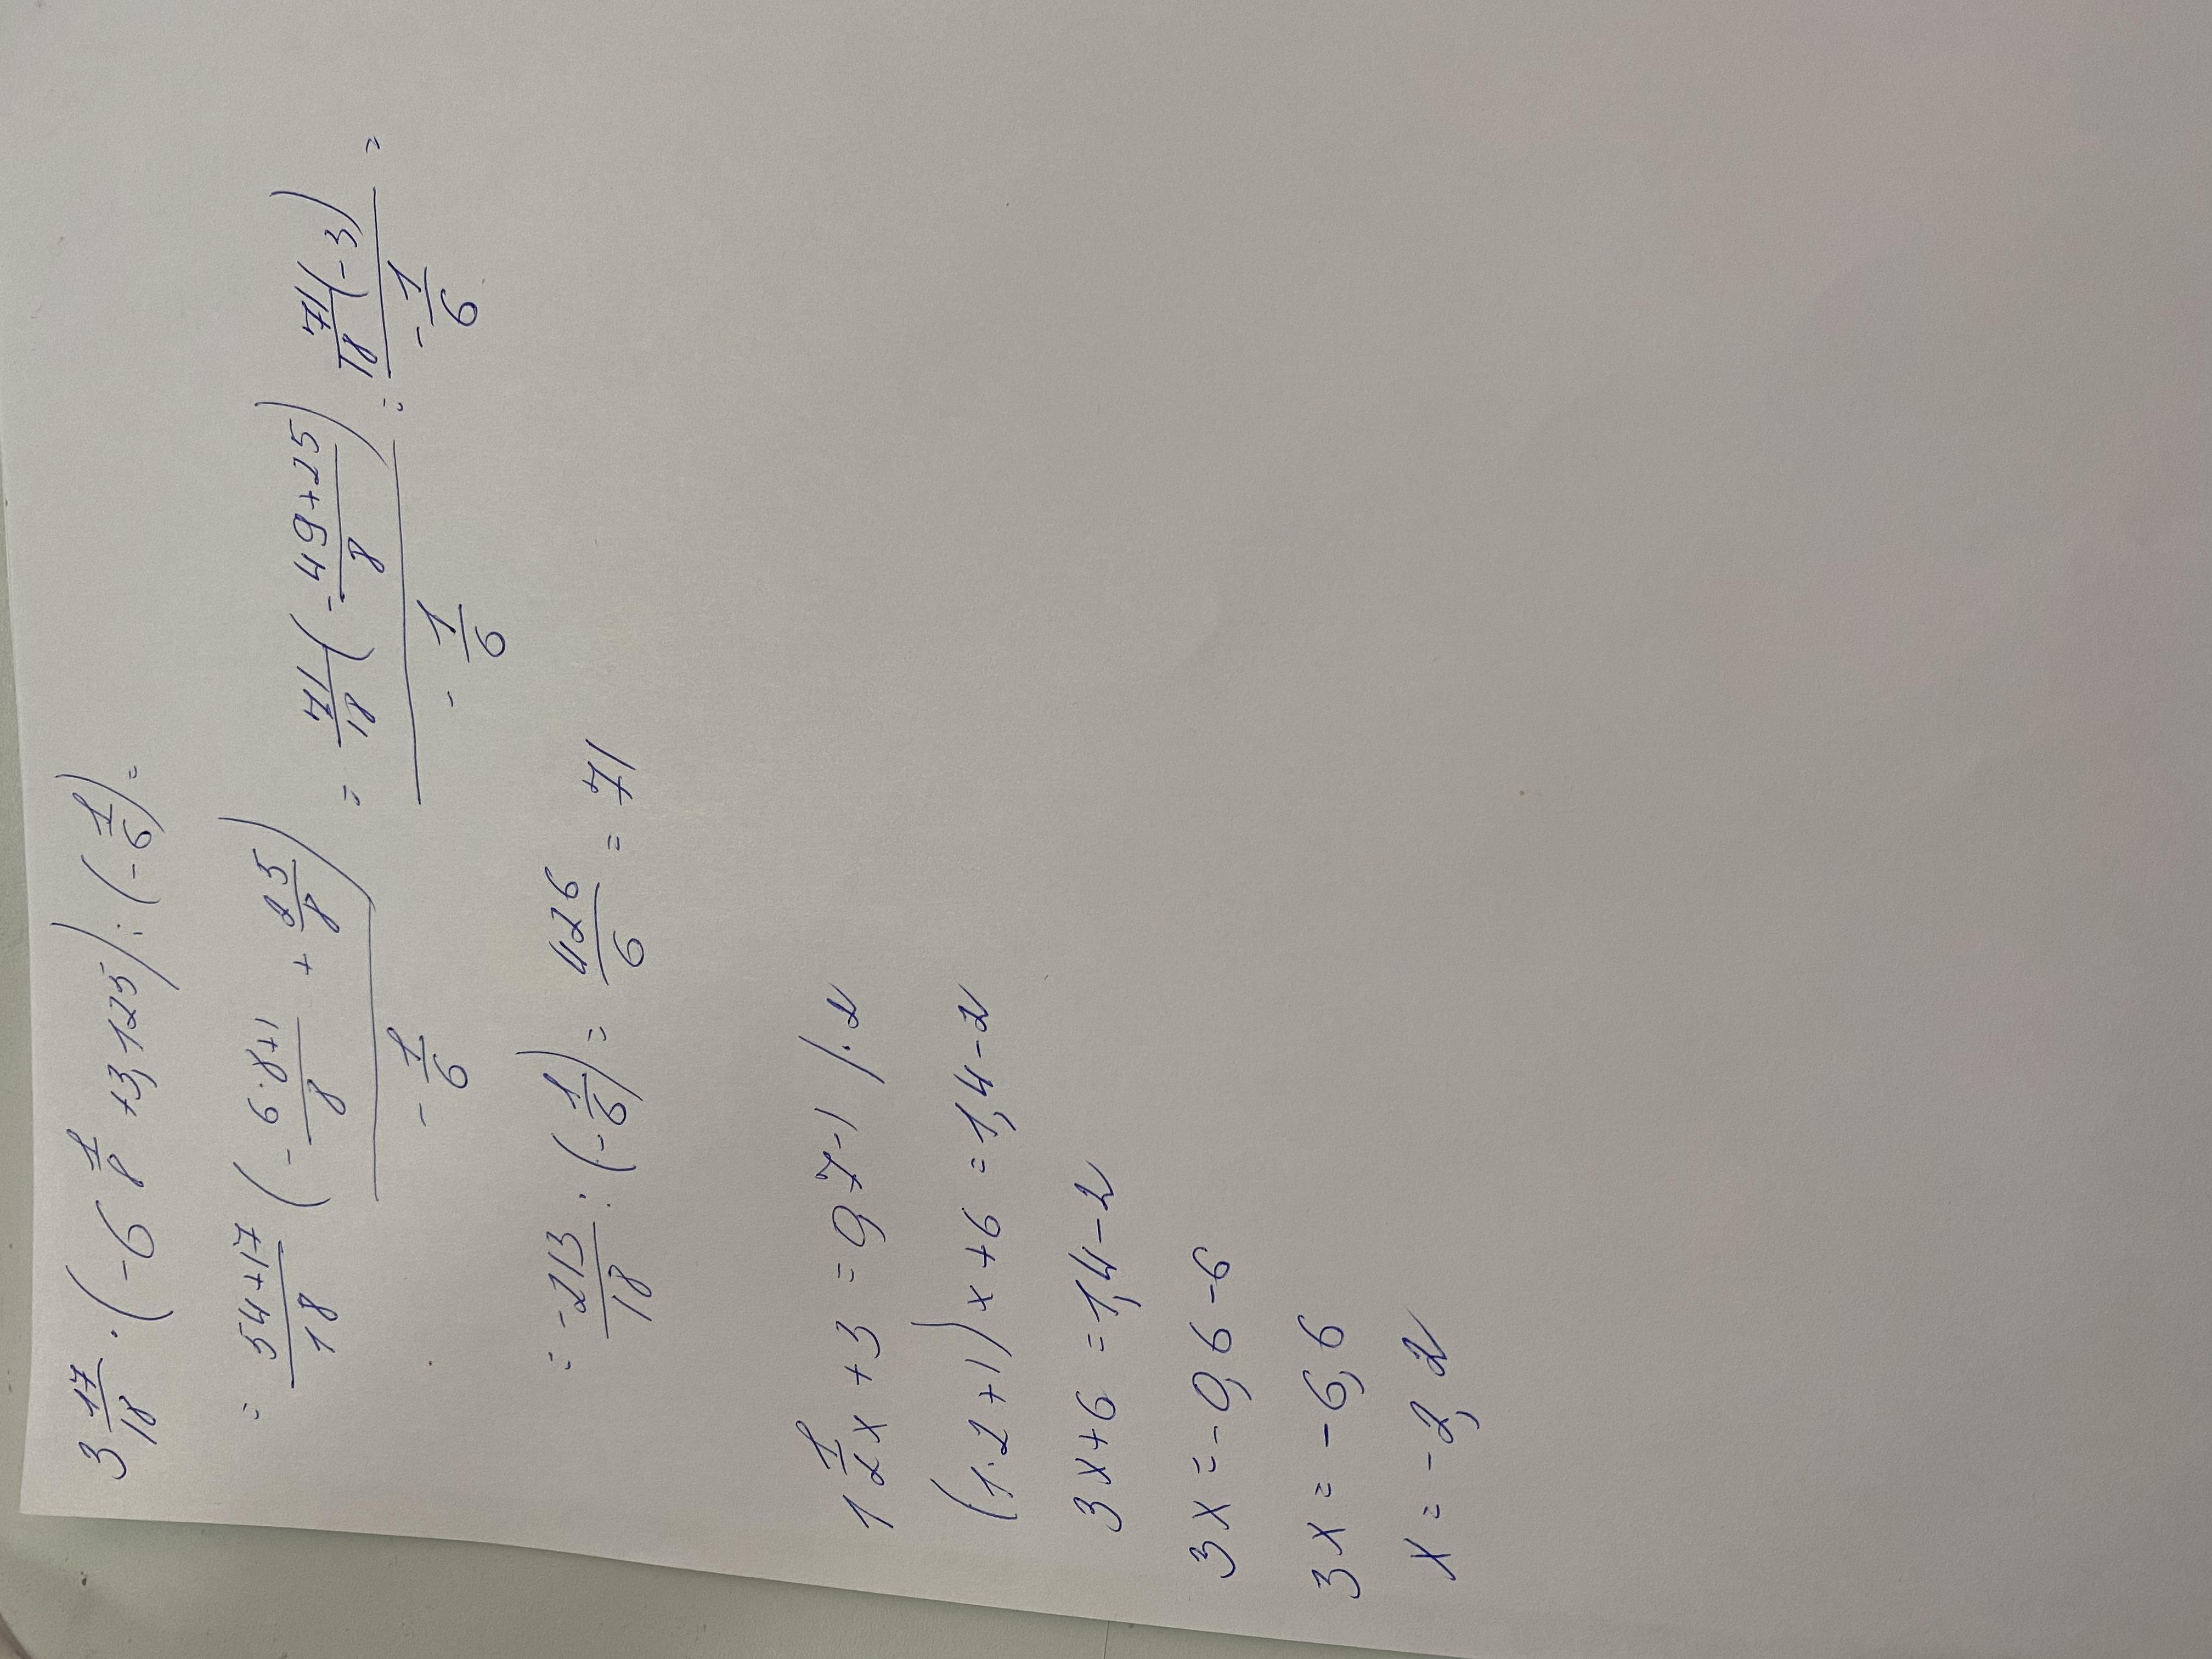 3 17/18 · (-6 1/8 + 3,125) : (-1/6) =
= (54+17)/18 (- (6·8+1)/8 + 25/8) / (-1/6) = 71/18 (-49+25)/8) / (-1/6) = 71/18 (-3) / (-1/6) =
= -213/18 : (-1/6) = 426/6 = 71
1 1/2 x + 3 = 0,7-1 /·2
(1·2+1) x + 6 = 1,4-2
3x+6 = 1,4-2
3x = -0,6-6
3x = -6,6
x = -2,2